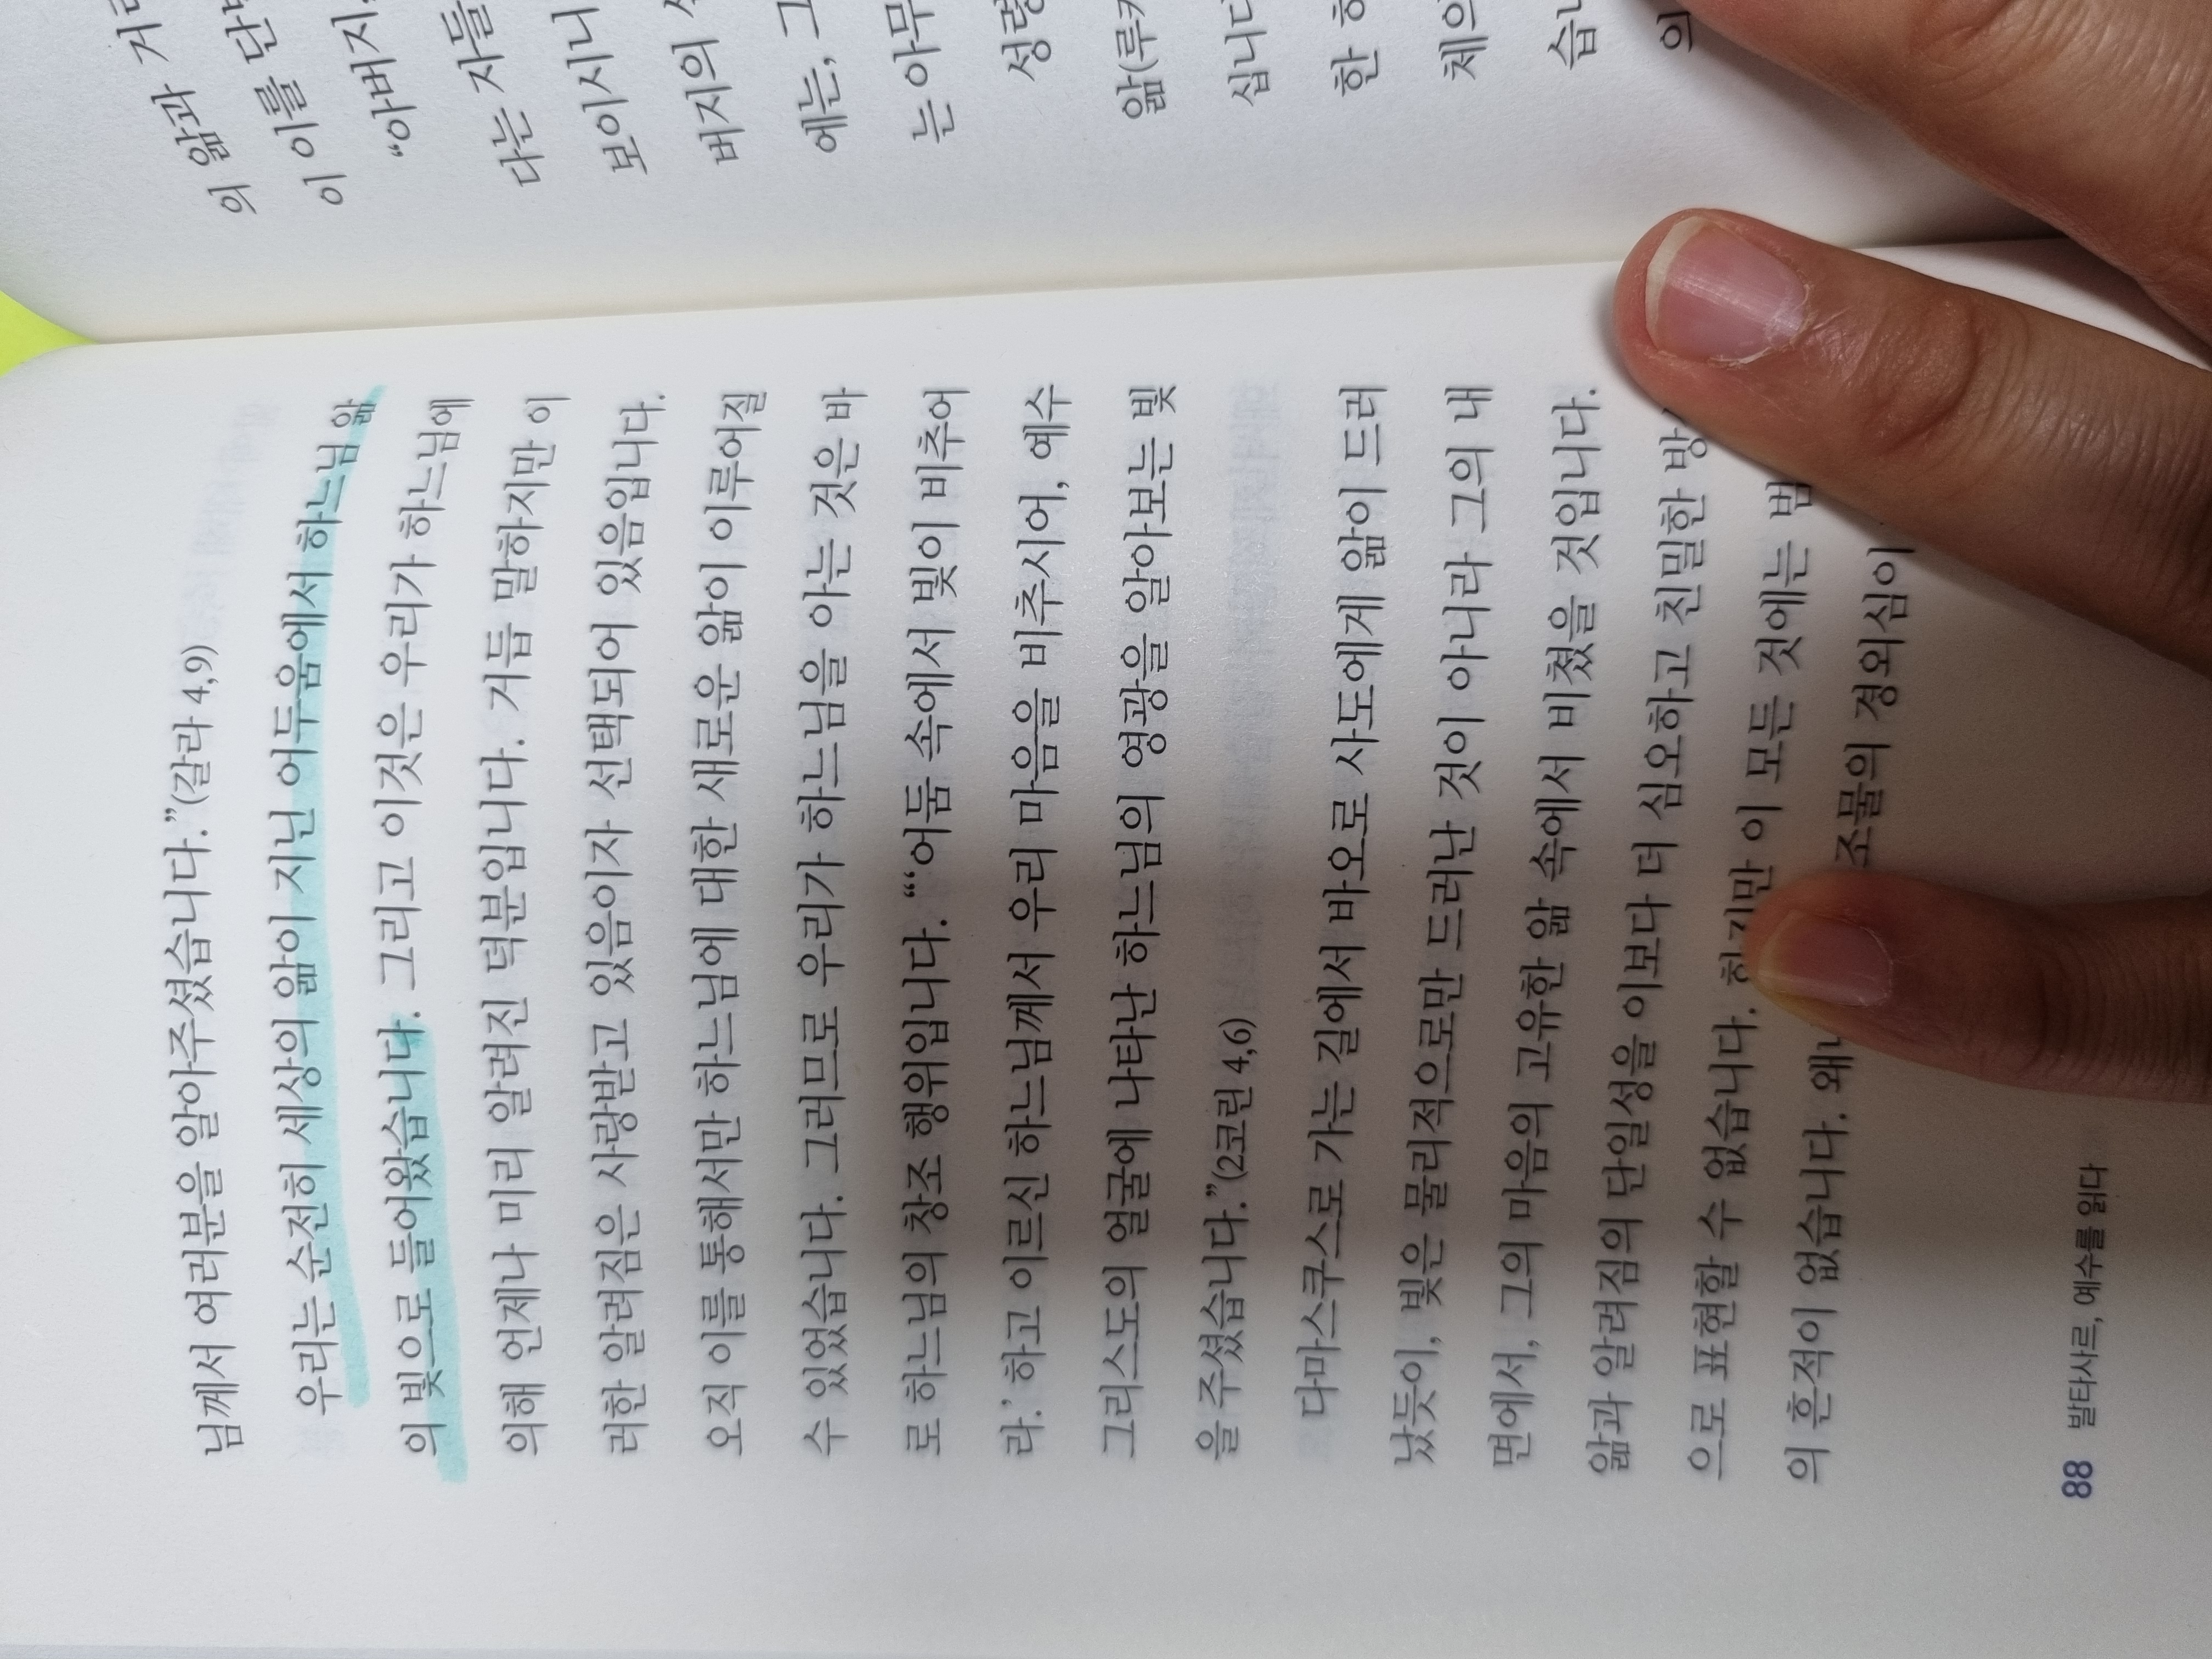 님께서 여러분을 알아주셨습니다.”(갈라 4,9)
우리는 순전히 세상의 앎이 지닌 어두움에서 하느님 앎
의 빛으로 들어왔습니다. 그리고 이것은 우리가 하느님에
의해 언제나 미리 알려진 덕분입니다. 거듭 말하지만 이
러한 알려짐은 사랑받고 있음이자 선택되어 있음입니다.
오직 이를 통해서만 하느님에 대한 새로운 앎이 이루어질
수 있었습니다. 그러므로 우리가 하느님을 아는 것은 바
로 하느님의 창조 행위입니다. “‘어둠 속에서 빛이 비추어
라.’ 하고 이르신 하느님께서 우리 마음을 비추시어, 예수
그리스도의 얼굴에 나타난 하느님의 영광을 알아보는 빛
을 주셨습니다.”(2코린 4,6)
다마스쿠스로 가는 길에서 바오로 사도에게 앎이 드러
났듯이, 빛은 물리적으로만 드러난 것이 아니라 그의 내
면에서, 그의 마음의 고유한 앎 속에서 비쳤을 것입니다.
앎과 알려짐의 단일성을 이보다 더 심오하고 친밀한 방
으로 표현할 수 없습니다. 하지만 이 모든 것에는 범
의 흔적이 없습니다. 왜 조물의 경외심이
88 발타사르, 예수를 읽다
의 앎과
이 이를 단
“아버지
다는 자들
보이시니
버지의
에는, 그
는 아무
성령
앎(루카
십니다
한 하
체의
습니
의